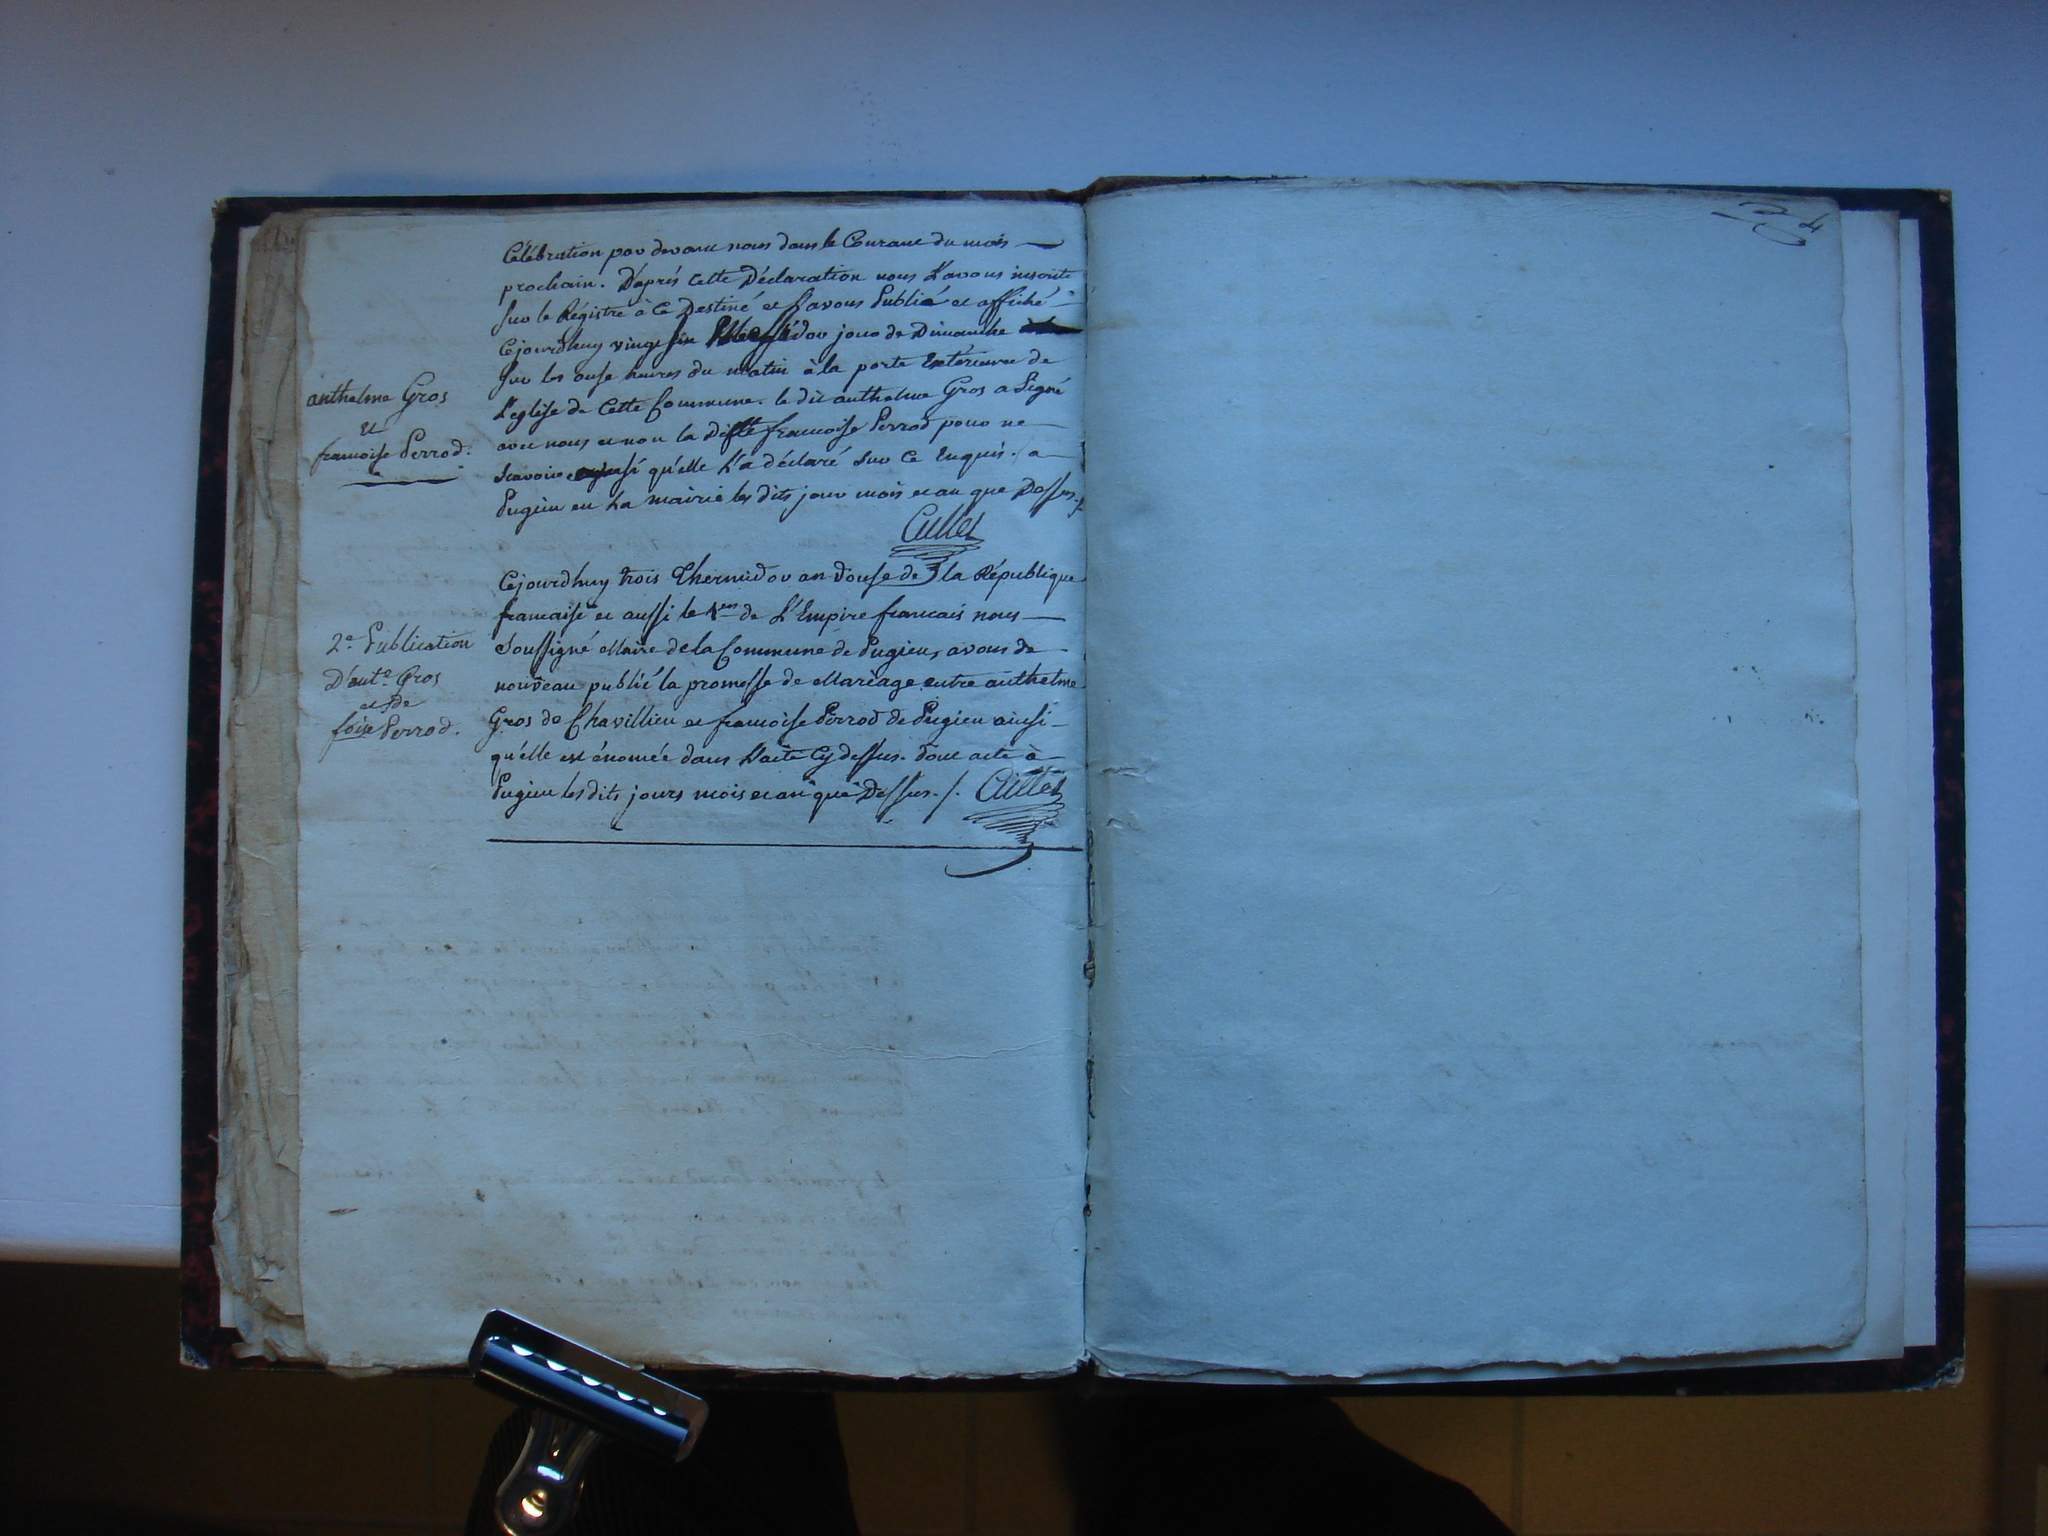 Célébration par devant nous dans le Courant du mois
prochain. D'aprés Cette Déclaration nous L'avons inscrite
sur le Régistre à Ce Destiné et L'avons Publié et affiché
Cejourdhuy vingt six jour de Dimanche
sur les onse heures du matin à la porte Extérieure de
L'eglise de Cette Commune. le dit anthelme Gros a Signé
avec nous et non la ditte francoise Perrod pour ne
Scavoir qu'elle L'a déclaré sur Ce Enquis. a
Pugieu en La mairie les dits jour mois et an que Dessus.
Cullet
anthelme Gros
et
francoise Perrod.
Cejourdhuy trois Thermidor an douse de la République
francaise et aussi le 1er de L'Empire francais nous
Soussigné Maire de la Commune de Pugieu, avons de
nouveau publié la promesse de Mariage entre anthelme
Gros de Chavillieu et francoise Perrod de Pugieu ainsi
qu'elle est énomée dans L'acte Cy dessus. dont acte à
Pugieu les dits jours mois et an que Dessus. /. Cullet
2e. Publication
D'ant.e Gros
et de
foise Perrod.